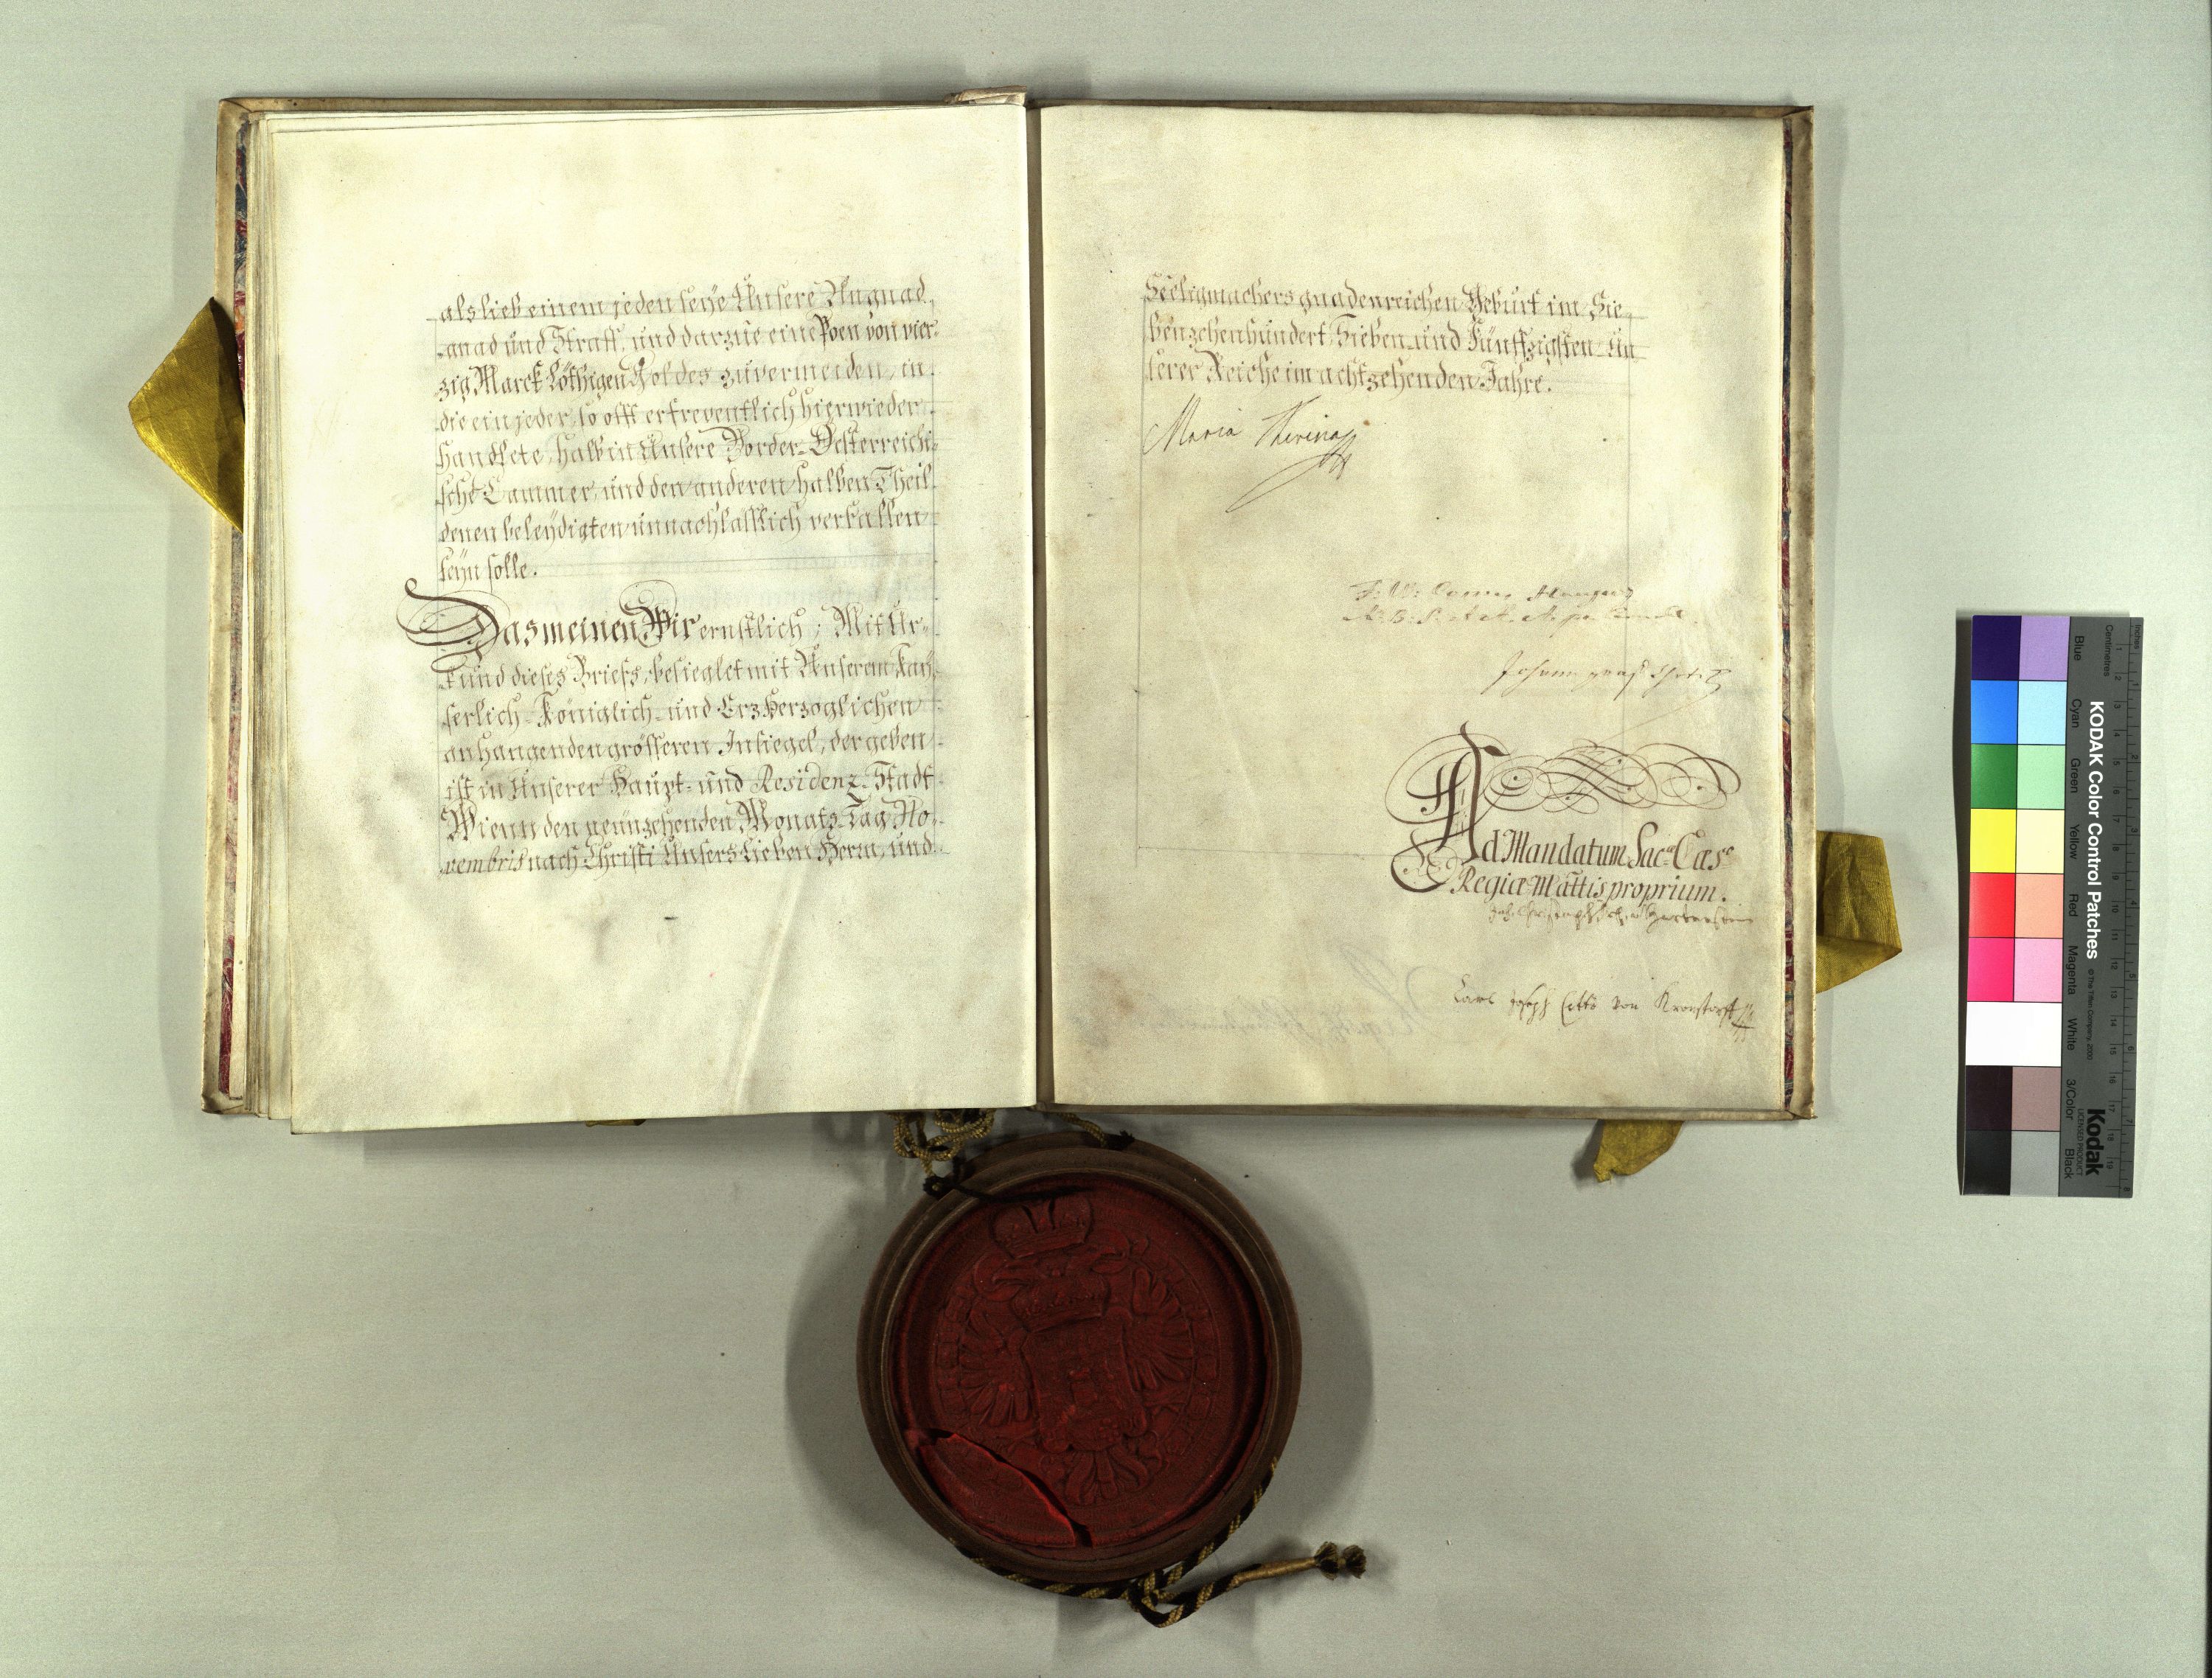 als lieb einem jeden seÿe Unsere Ungnad,
gnad und Straff, und darzue eine Poen von vier-
zig Marck Löthigen Goldes zuvermeiden, in
die ein jeder, so offt er freventlich hierwieder
handlete, halb in Unsere Vorder-Oesterreichi-
sche Cammer, und den anderen halben Theil
denen beleÿdigten unnachlässlich verfallen
seÿn solle.
Das meinen Wir ernstlich; Mit Ur-
kund dieses Briefs, besieglet mit Unserem Kaÿ-
serlich-Königlich- und Erzherzoglichen
anhangenden grösseren Insiegel, der geben
ist in Unserer Haupt- und Residenz-Stadt
Wienn den neünzehenden Monats-Tag No-
vembris nach Christi Unsers Lieben Herrn, und
Seeligmachers gnadenreichen Geburt im Sie-
benzehenhundert, Sieben und Fünffzigsten Un-
serer Reiche im achtzehenden Jahre.
Maria Theresia
Ad Mandatum Sacae Caes.
Regiae Mattis proprium.
Carl Joseph Cetto von Kronstorff
KODAK Color Control Patches
© The Tiffen Company, 2000
Kodak
LICENSED PRODUCT
Inches
Centimetres
1 2 3 4 5 6 7 8 9 10 11 12 13 14 15 16 17 18 19
Blue Cyan Green Yellow Red Magenta White 3/Color Black